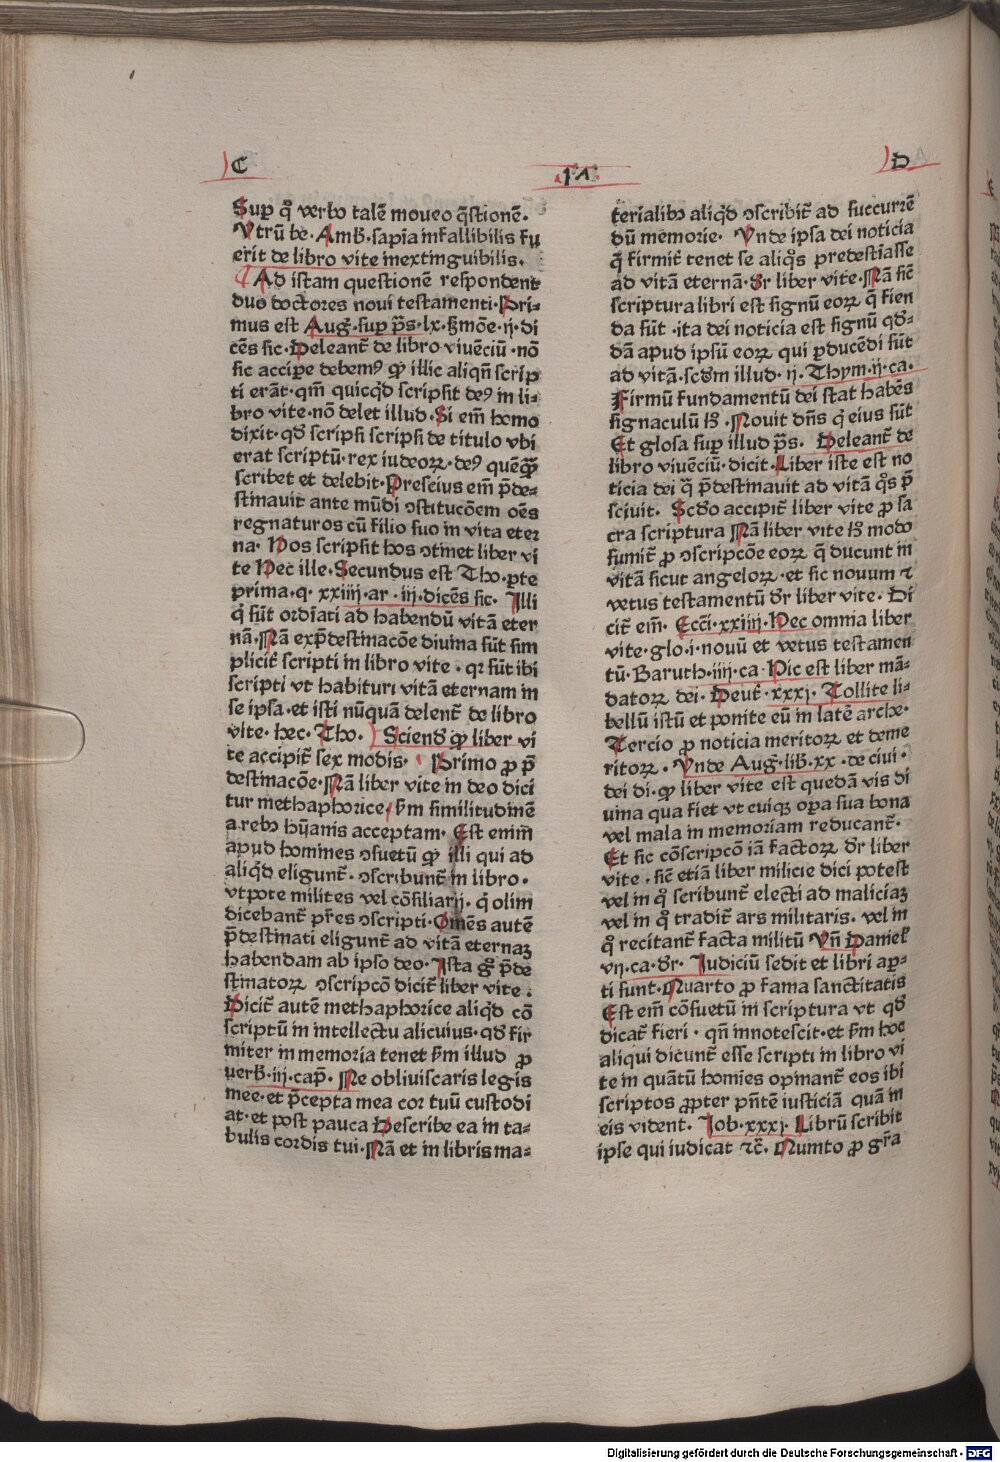 C
11
D
Sup̲ qͦ verbo talē moueo q̄stionē.
Vtrū be. Amb̄. sapīa infallibilis fu
erit de libro vite inextinguibilis.
Ad istam questionē respondent
duo doctores noui testamenti. Pri⸗
mus est Aug. sup̲ p̄s. lx. ẞmōe. ij. di
cēs sic. Deleant̄ de libro viuēciū. nō
sic accipe debemꝰ ꝙ illic aliqn̄ scrip
ti erāt. qm̄ quicq̇d scripsit deꝰ in li⸗
bro vite. nō delet illud. Si em̄ homo
dixit. qd̄ scripsi scripsi de titulo vbi
erat scriptū. rex iudeoꝝ. deꝰ quēq̄ꝫ
scribet et delebit. Prescius em̄ p̄de⸗
stinauit ante mūdi ꝯstitucōem oēs
regnaturos cū filio suo in vita eter
na. Hos scripsit hos ꝯtinet liber vi
te Hec ille. Secundus est Tho. pte
prima. q. xxiiij. ar. iij. dicēs sic. Illi
q̇ sūt ordīati ad habendū vitā eter
nā. Nā exp̄destinacōe diuina sūt sim
plicit̄ scripti in libro vite. qꝛ sūt ibi
scripti vt habituri vitā eternam in
se ipsa. et isti nūquā delent̄ de libro
vite. hec. Tho. Sciend̄ ꝙ liber vi
te accipit̄ sex modis. Primo ꝓ p̄
destinacōe. Nā liber vite in deo dici
tur methaphorice / ẞm similitudinē
a rebꝫ hūanis acceptam. Est enim̄
apud homines ꝯsuetū ꝙ illi qui ad
aliq̇d eligunt̄. ꝯscribunt̄ in libro.
vtpote milites vel cōsiliarij. q̇ olim
dicebant̄ pr̄es ꝯscripti. Om̄es autē
p̄destinati eligunt̄ ad vitā eternaꝫ
habendam ab ipso deo. Ista gͦ p̄de
stinatoꝝ ꝯscripcō dicit̄ liber vite.
Dicit̄ autē methaphorice aliq̇d cō
scriptū in intellectu alicuius. qd̄ fir
miter in memoria tenet ẞm illud ꝓ
uerb̄. iij. cap̄. Ne obliuiscaris legis
mee. et p̄cepta mea cor tuū custodi
at. et post pauca Describe ea in ta⸗
bulis cordis tui. Nā et in libris ma⸗
terialibꝫ aliq̇d ꝯscribit̄ ad succurrē
dū memorie. Vnde ipsa dei noticia
q̄ firmit̄ tenet se aliqͦs predestiasse
ad vitā eternā. dr̄ liber vite. Nā sic̄
scriptura libri est signū eoꝝ q̄ fien
da sūt. ita dei noticia est signū qd̄⸗
dā apud ipsū eoꝝ qui ꝓducēdi sūt
ad vitā. scdm̄ illud. ij. Thym. ij. ca.
Firmū fundamentū dei stat habēs
signaculū hͦ. Nouit dn̄s q̇ eius sūt
Et glosa sup̲ illud p̄s. Deleant̄ de
libro viuēciū. dicit. Liber iste est no
ticia dei q̄ p̄destinauit ad vitā qͦs p̄
sciuit. Scd̄o accipit̄ liber vite ꝓ sa
cra scriptura Nā liber vite hͦ modo
sumit̄ ꝓ ꝯscripcōe eoꝝ q̄ ducunt in
vitā sicut angeloꝝ. et sic nouum ⁊
vetus testamentū dr̄ liber vite. Di
cit̄ em̄. Ecc̄i. xxiiij. Hec omnia liber
vite. glo. i. nouū et vetus testamen
tū. Baruth. iiij. ca. Hic est liber mā⸗
datoꝝ dei. Deut̄. xxxj. Tollite li⸗
bellū istū et ponite eū in latē arche.
Tercio ꝓ noticia meritoꝝ et deme
ritoꝝ. Vnde Aug. lib̄. xx. de ciui.
dei di. ꝙ liber vite est quedā vis di
uina qua fiet vt cuiqꝫ oꝑa sua bona
vel mala in memoriam reducant̄.
Et sic cōscripcō iā factoꝝ dr̄ liber
vite. sic̄ etiā liber milicie dici potest
vel in qͦ scribunt̄ electi ad maliciaꝫ
vel in qͦ tradit̄ ars militaris. vel in
qͦ recitant̄ facta militū Vn̄ Daniel̄
vij. ca. dr̄. Iudiciū sedit et libri apꝛ⸗
ti sunt. Quarto ꝓ fama sanctitatis
Est em̄ cōsuetū in scriptura vt qd̄
dicat̄ fieri. qn̄ innotescit. et ẞm hoc
aliqui dicunt̄ esse scripti in libro vi
te in quātū homīes opinant̄ eos ibi
scriptos ꝓpter pn̄tē iusticiā quā in
eis vident. Iob. xxxj. Librū scribit
ipse qui iudicat ⁊c̄. Quinto ꝓ gr̄a
Digitalisierung gefördert durch die Deutsche Forschungsgemeinschaft - DFG